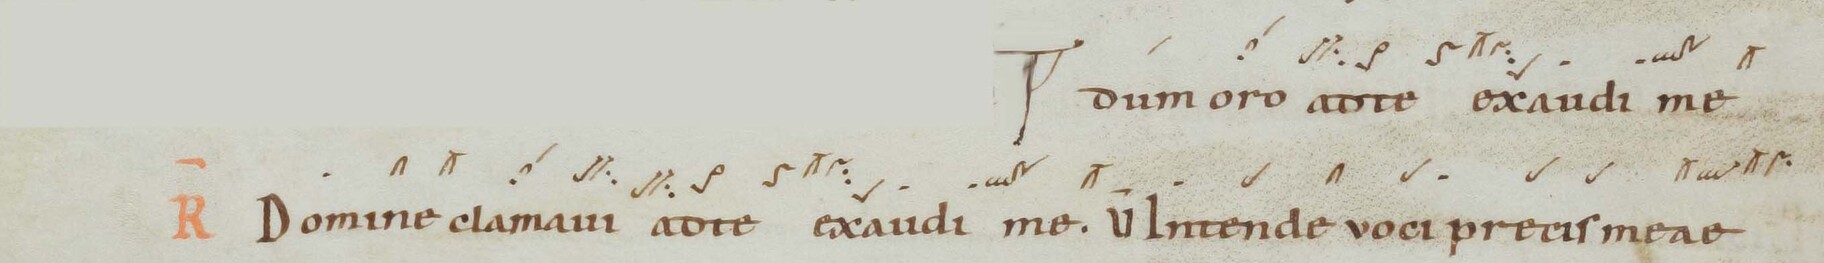 P dum oro ad te exaudi me
R Domine clamaui ad te exaudi me. V Intende voci precis meae